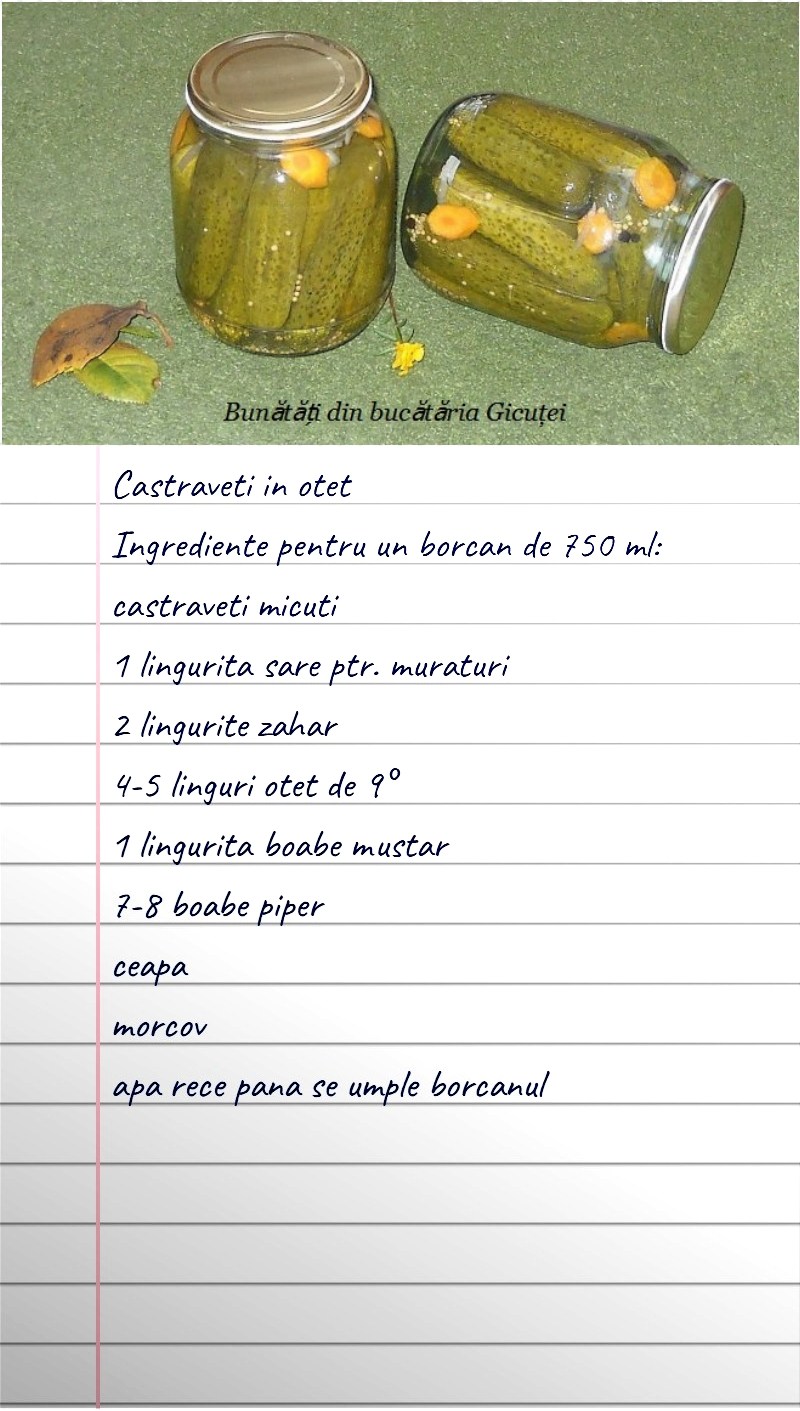 Bunătăți din bucătăria Gicuței
Castraveti in otet
Ingrediente pentru un borcan de 750 ml:
castraveti micuti
1 lingurita sare ptr. muraturi
2 lingurite zahar
4-5 linguri otet de 9°
1 lingurita boabe mustar
7-8 boabe piper
ceapa
morcov
apa rece pana se umple borcanul